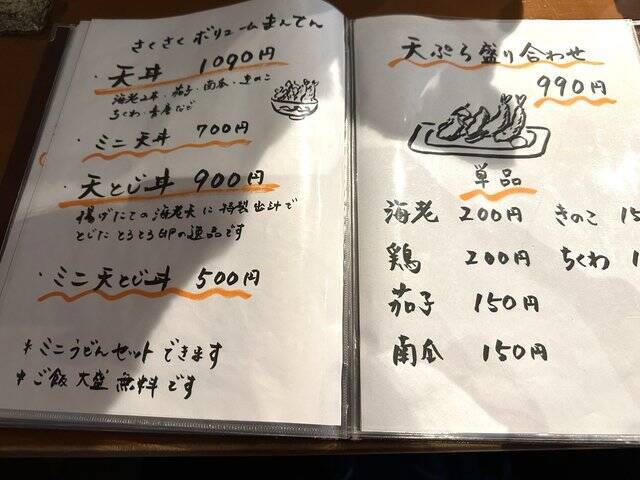 さくさく ボリュームまんてん
・天丼 1090円
海老2本・茄子・南瓜・きのこ
ちくわ・青唐など
・ミニ天丼 700円
・天とじ丼 900円
揚げたての海老天に特製出汁で
とじた とろとろ の逸品です
・ミニ天とじ丼 500円
* ミニうどんセットできます
* ご飯大盛無料です
天ぷら盛り合わせ
990円
単品
海老 200円 きのこ 15
鶏 200円 ちくわ 1
茄子 150円
南瓜 150円